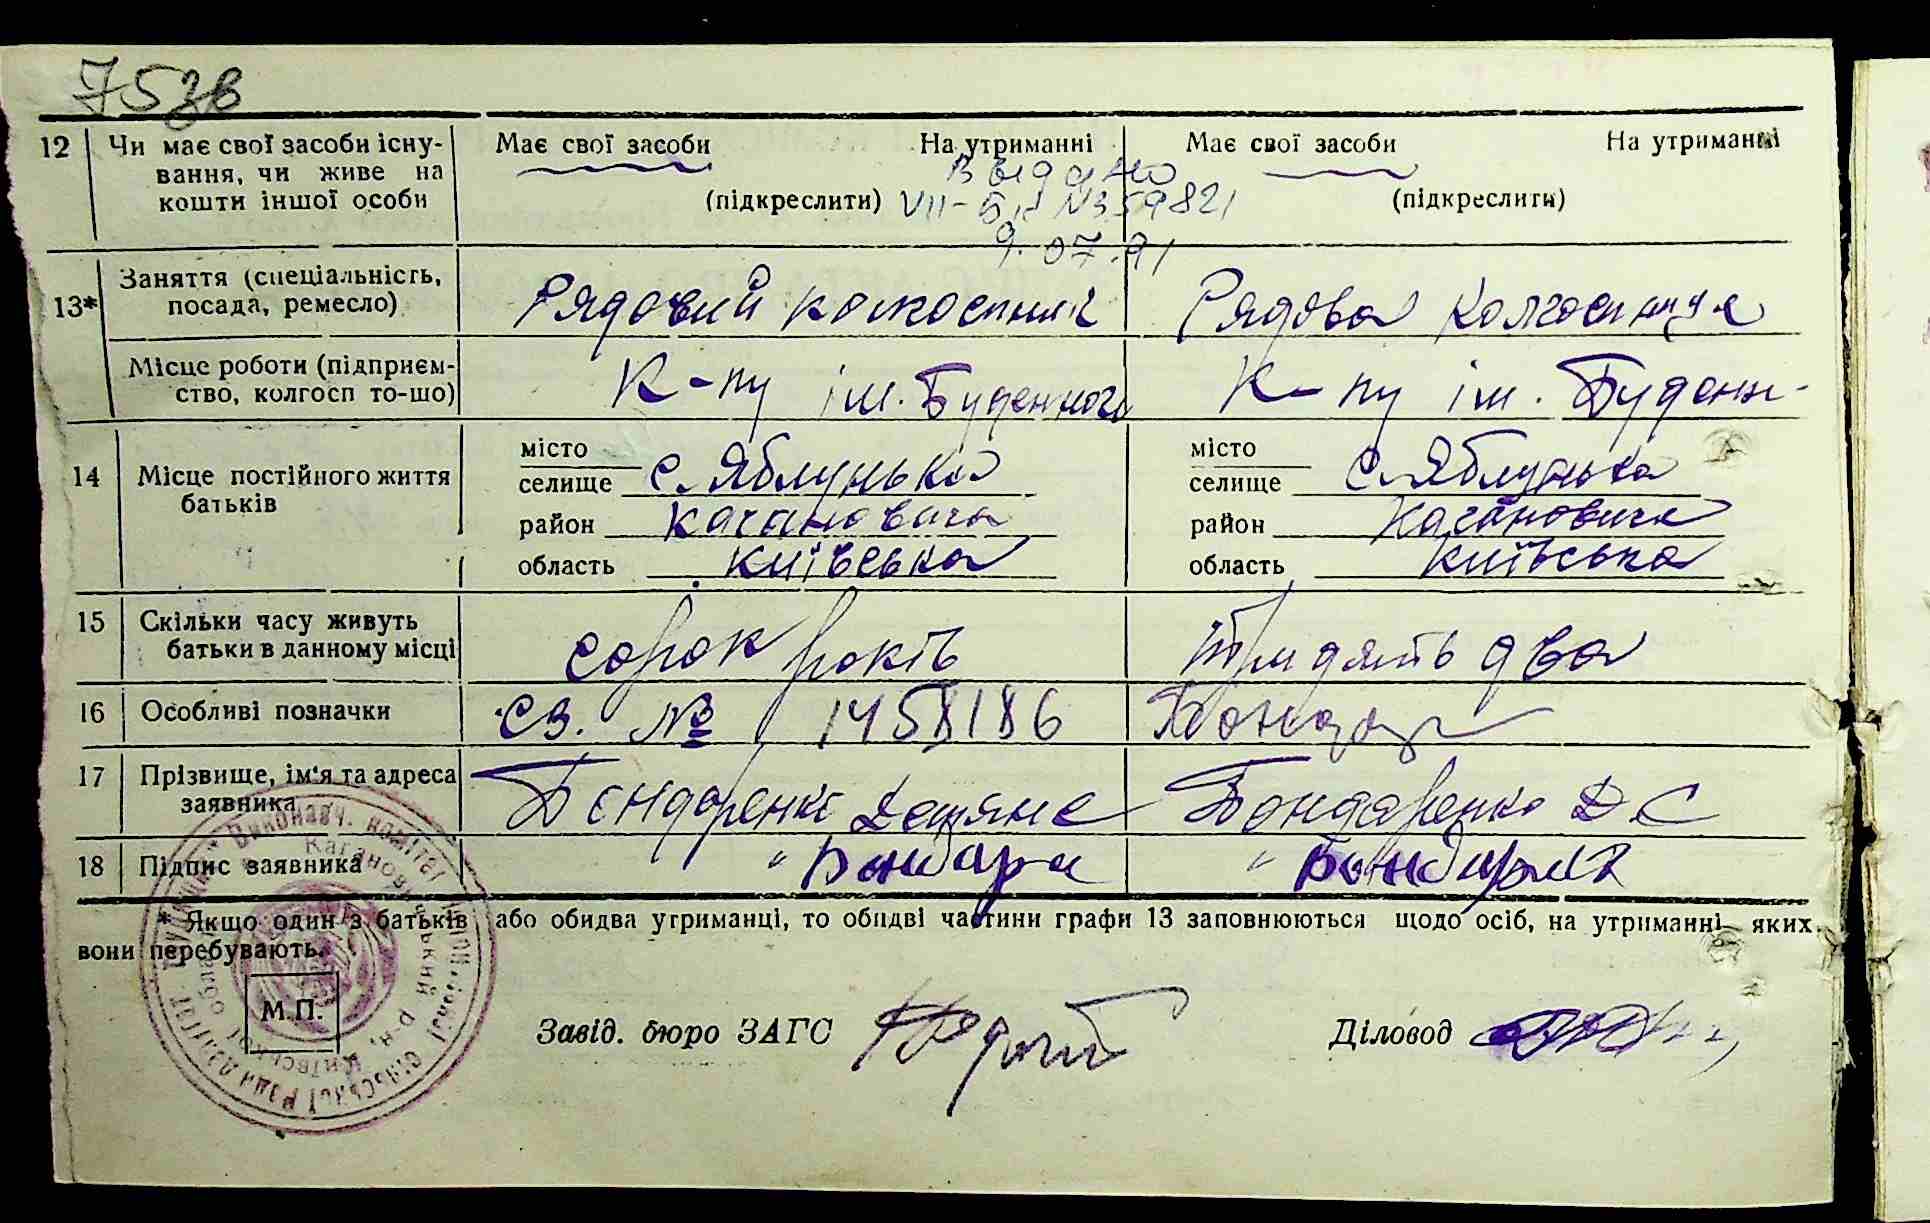 75зв
12 Чи має свої засоби існу- Має свої засоби На утриманні Має свої засоби На утриманні
вання, чи живе на Видано
кошти іншої особи (підкреслити) VII-БК N359821 (підкреслити)
9.07.91
13* Заняття (спеціальність,
посада, ремесло) Рядовий колгоспник Рядова колгоспниця
Місце роботи (підприєм-
ство, колгосп то-що) К-пу ім. Буденного К-пу ім. Буденн-
місто місто
14 Місце постійного життя селище с. Яблунька селище с. Яблунька
батьків район Кагановича район Кагановича
область Київська область Київська
15 Скільки часу живуть
батьки в данному місці сорок років тридять два
16 Особливі позначки СВ. № 1458186
17 Прізвище, ім'я та адреса
заявника Бондаренко Демяне Бондаренко Д С
18 Підпис заявника " Бондаре "
* Якщо один з батьків або обидва утриманці, то обидві частини графи 13 заповнюються щодо осіб, на утриманні яких
вони перебувають.
М.П.
Завід. бюро ЗАГС Діловод
Виконавч. комітет сільської Ради
Кагановичський р-н, Київської обл